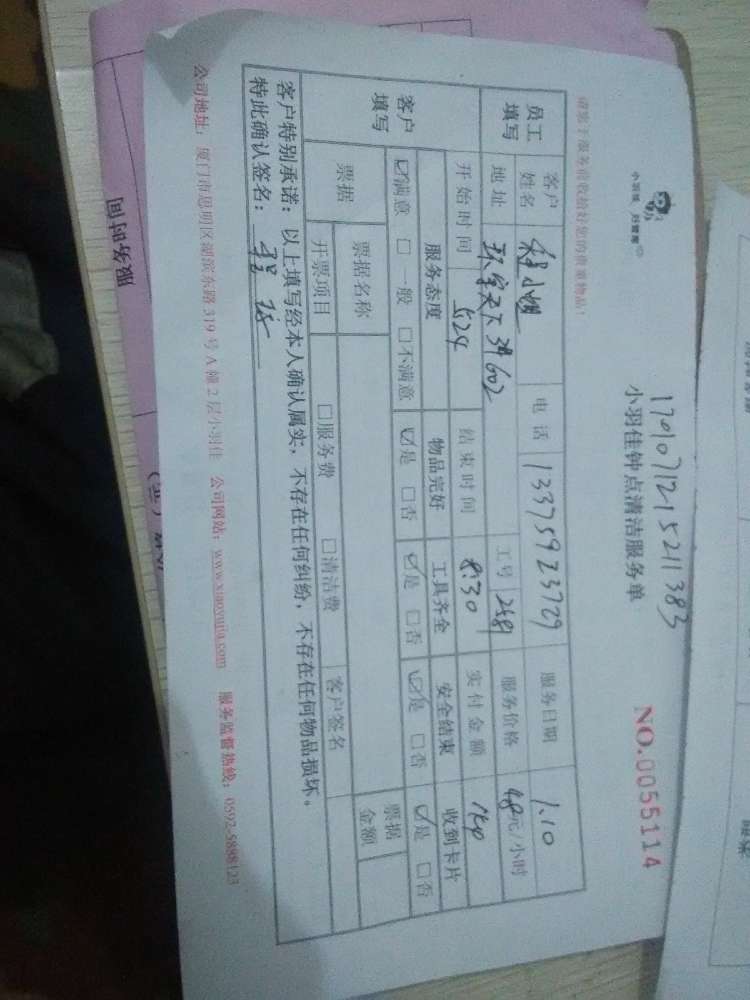 1701071215211383
小羽佳钟点清洁服务单
NO.0055114
小羽佳 好管家
请您于服务前收拾好您的贵重物品!
员工填写 客户姓名 程小姐 电话 13375923729 服务日期 1.10
地址 环宇天下 39 602 工号 2581 服务价格 48元/小时
开始时间 5:24 结束时间 8:30 实付金额
客户填写 服务态度 物品完好 工具齐全 安全结束 收到卡片
☑满意 □一般 □不满意 ☑是 □否 ☑是 □否 ☑是 □否 ☑是 □否
票据 票据名称 票据金额
开票项目 □服务费 □清洁费 客户签名
客户特别承诺:以上填写经本人确认属实,不存在任何纠纷,不存在任何物品损坏。
特此确认签名:
公司地址:厦门市思明区湖滨东路319号A幢2层小羽佳 公司网站:www.xiaoyujia.com 服务监督热线:0592-5898123
服务时间